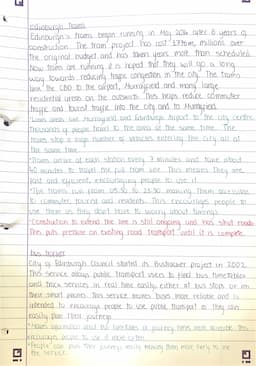 Edinburgh Trams
Edinburgh's trams began running in May 2014 after 6 years of
construction. The tram project has cost 776m, millions over
the original budget and has taken years more than scheduled.
Now trams are running it is hoped that they will go a long
way towards reducing traffic congestion in the city. The trams
link the CBD to the airport, Murrayfield and many large
residential areas on the outskirts. This helps reduce commuter
traffic and tourist traffic into the city and to Murrayfield.
areas like Murrayfield and Edinburgh Airport to the city centre,
thousands of people travel to the area at the same time. The
trams stop a huge number of vehicles entering the city all at
the same time.
*Trams arrive at each station every 7 minutes and take about
40 minutes to travel the full tram line. This means they are
fast and efficient, encouraging people to use it.
*The trams run from 05:30 to 23:30 making them accessible
to commuters, tourists and residents. This encourages people to
use them as they don't have to worry about timing.
*Construction to extend the line is still ongoing and has shut roads.
This puts pressure on existing road transport until it is complete.
Bus Tracker
City of Edinburgh Council started its Bustracker project in 2002.
This service allows public transport users to find bus timetables
and track services in real time easily either at bus stops or on
their smart phones. This service makes buses more reliable and is
intended to encourage people to use public transport as they can
easily plan their journeys.
information about bus timetables or journey times more accurate. This
encourages people to use it more often.
*People can plan their journeys easily meaning they're more likely to use
the service.